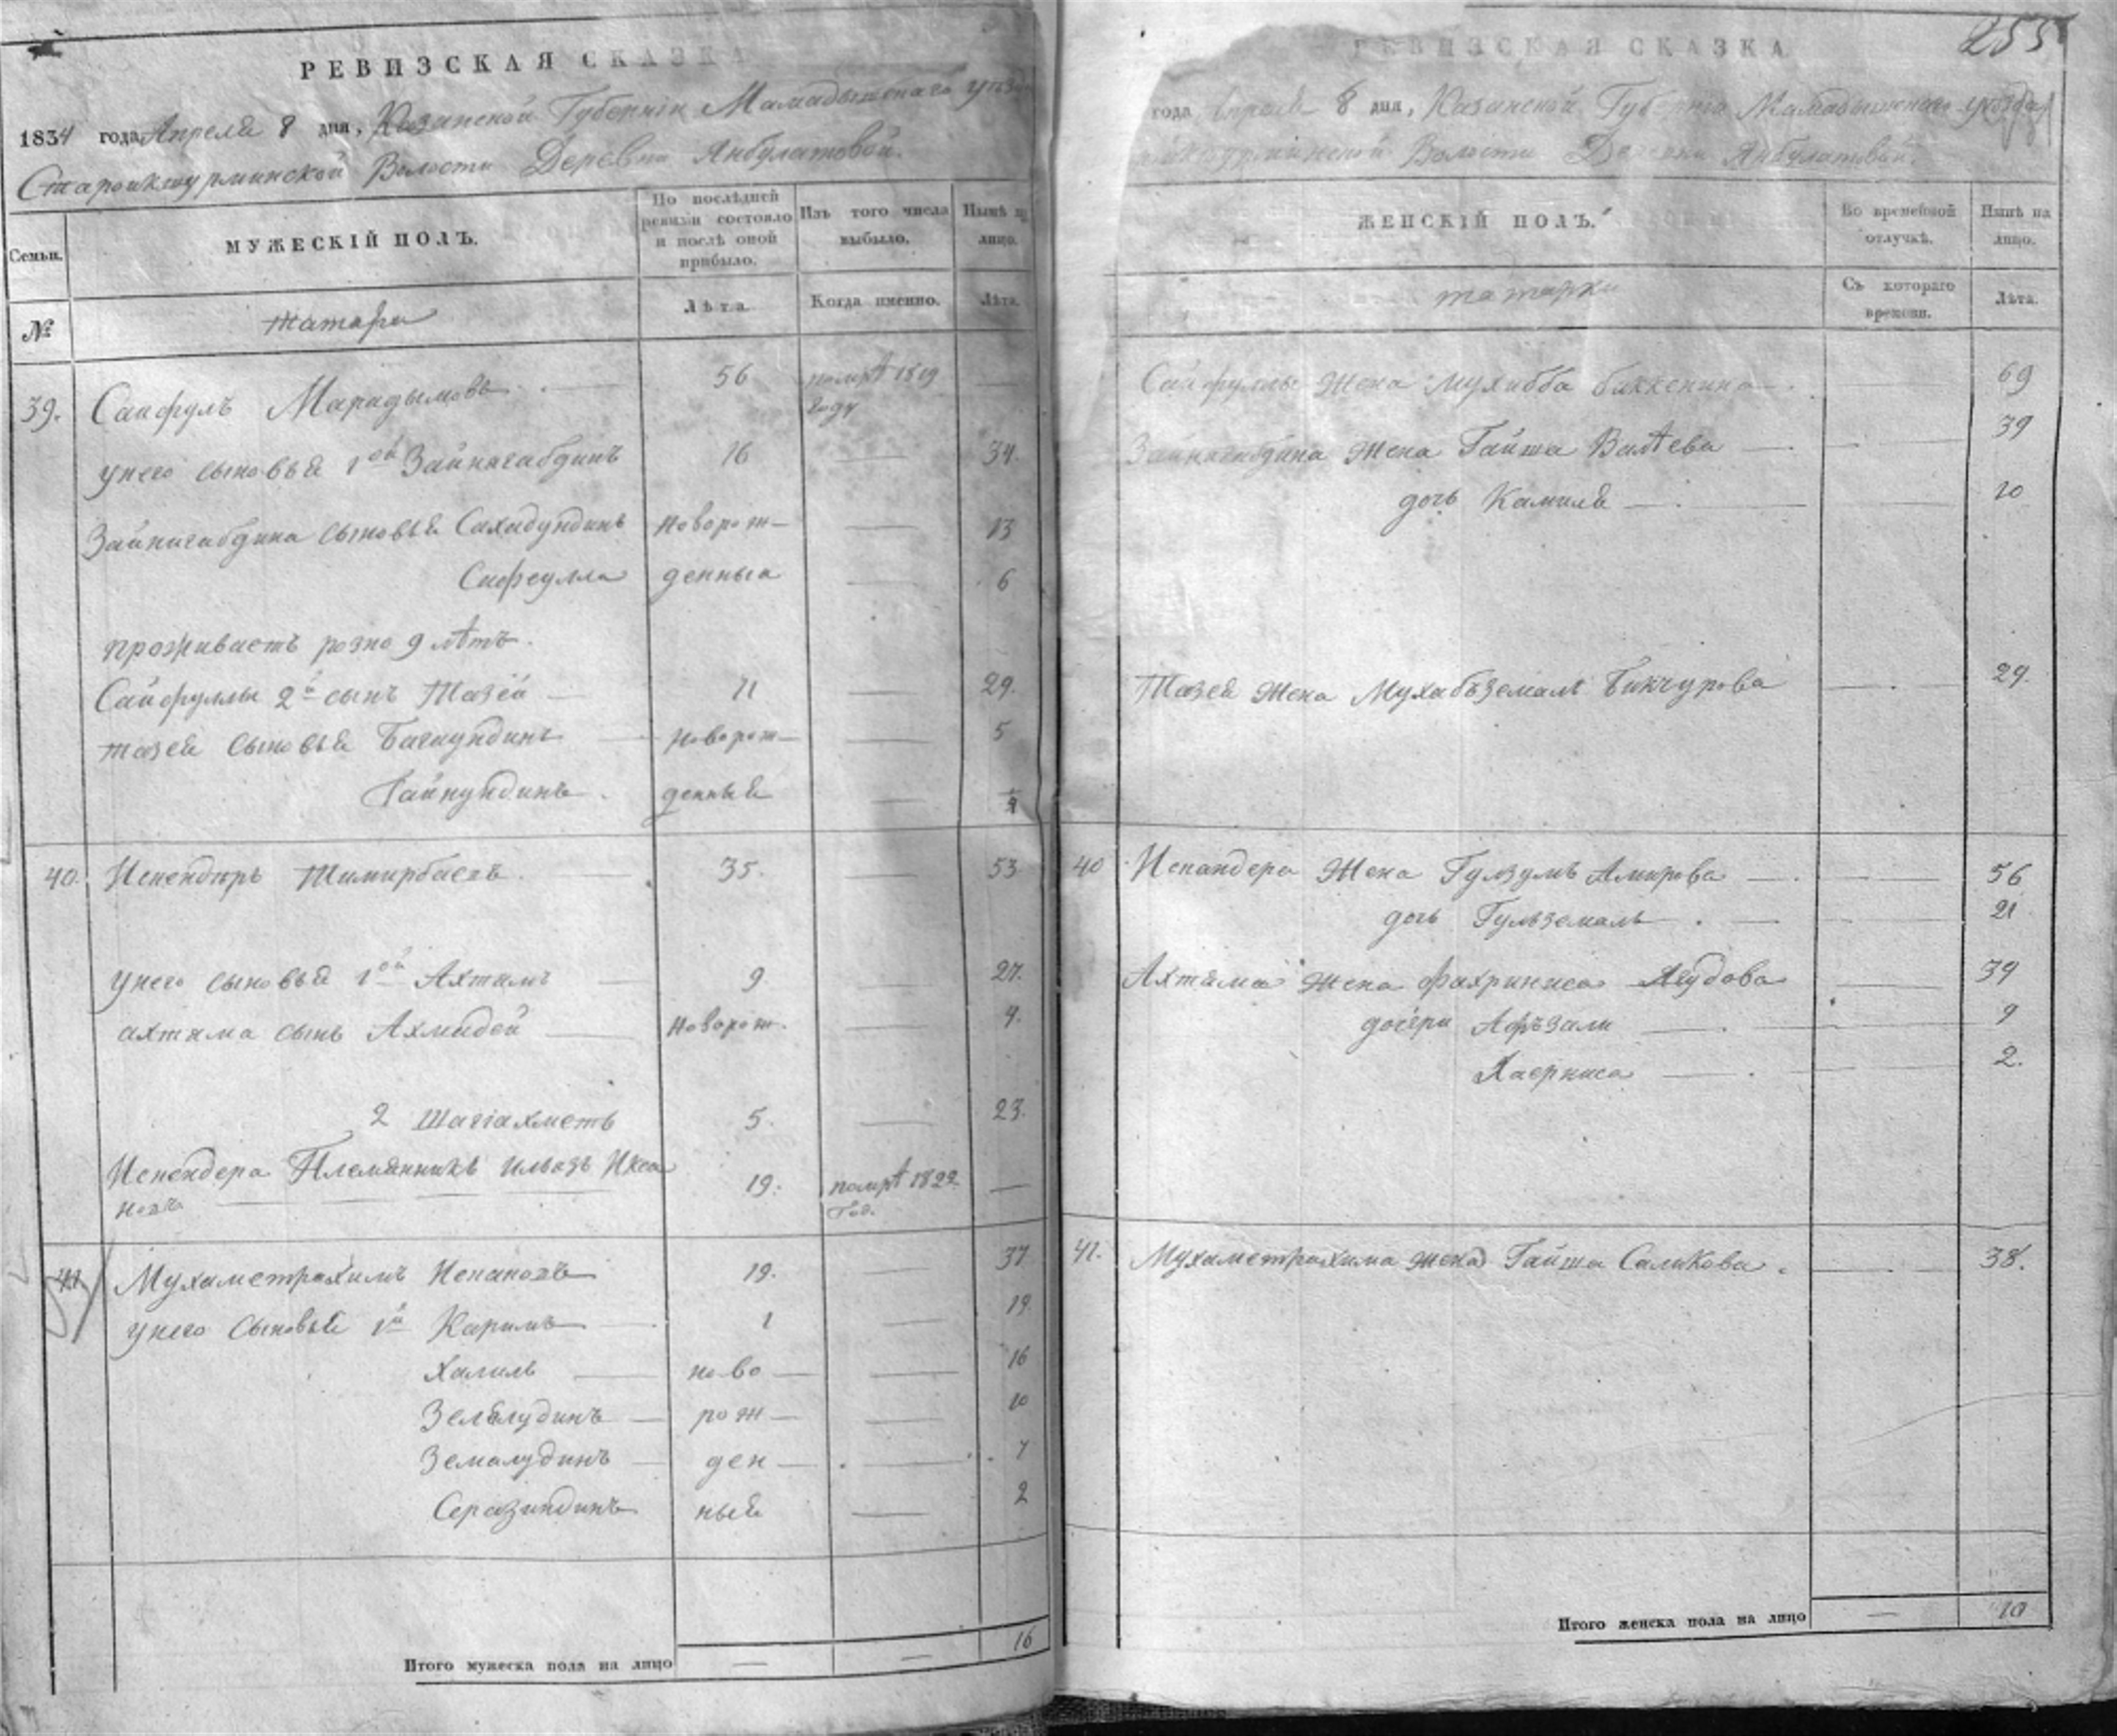 РЕВИЗСКАЯ СКАЗКА
1834 года Апреля 8 дня, Казанской Губернiи Мамадышскаго уезда
Староикшурминской Волости Деревни Янбулатовой.
Семьи. МУЖЕСКIЙ ПОЛЪ. По послѣдней ревизiи состояло и послѣ оной прибыло. Изъ того числа выбыло. Нынѣ на лицо.
№ татары Лѣта. Когда именно. Лѣта.
39. Саифулъ Марадымовъ 56 помрѣ 1819 году
у него сыновья 1ой Зайнигабдинъ 16 34.
Зайнигабдина сыновья Сахабундинъ новорож- 13
Сифеулла денныа 6
проживаетъ розно 9 лѣтъ.
Сайфуллы 2й сынъ Тазей 11 29.
тазея сыновья Багаундинъ новорож- 5
Гайнундинъ денныя
40. Искендяръ Тимирбаевъ 35. 53
у него сыновья 1ой Ахтямъ 9 27.
ахтяма сынъ Ахмадей новорож. 4.
2 Шагiахметъ 5. 23.
Искендера Племянникъ Ильязъ Искановъ 19. помрѣ 1822 год.
41 Мухаметрахимъ Искановъ 19. 37
у него сыновья 1й Каримъ 1 19.
Халиль ново 16
Зелялудинъ рож 10
Земалудинъ ден 7
Серазиндинъ ныя 2
Итого мужеска пола на лицо 16
255
РЕВИЗСКАЯ СКАЗКА
года Апреля 8 дня, Казанской Губернiи Мамадышскаго уезда
Волости Деревни Янбулатовой.
ЖЕНСКIЙ ПОЛЪ. Во временной отлучкѣ. Нынѣ на лицо.
татарки Съ котораго времени. Лѣта.
Сайфуллы жена Мухибба биккенина 69
Зайнигабдина жена Гайша Валѣева 39
дочь Камиля 10
Тазея жена Мухабъземалъ Бикчурова 29.
40 Искандера жена Гулзумъ Амирова 56
дочь Гульземаль 21
Ахтяма жена Фахриниса Ягудова 39
дочери Афъзали 9
Хаерниса 2.
41. Мухаметрахима жена Гайша Саликова. 38.
Итого женска пола на лицо 10